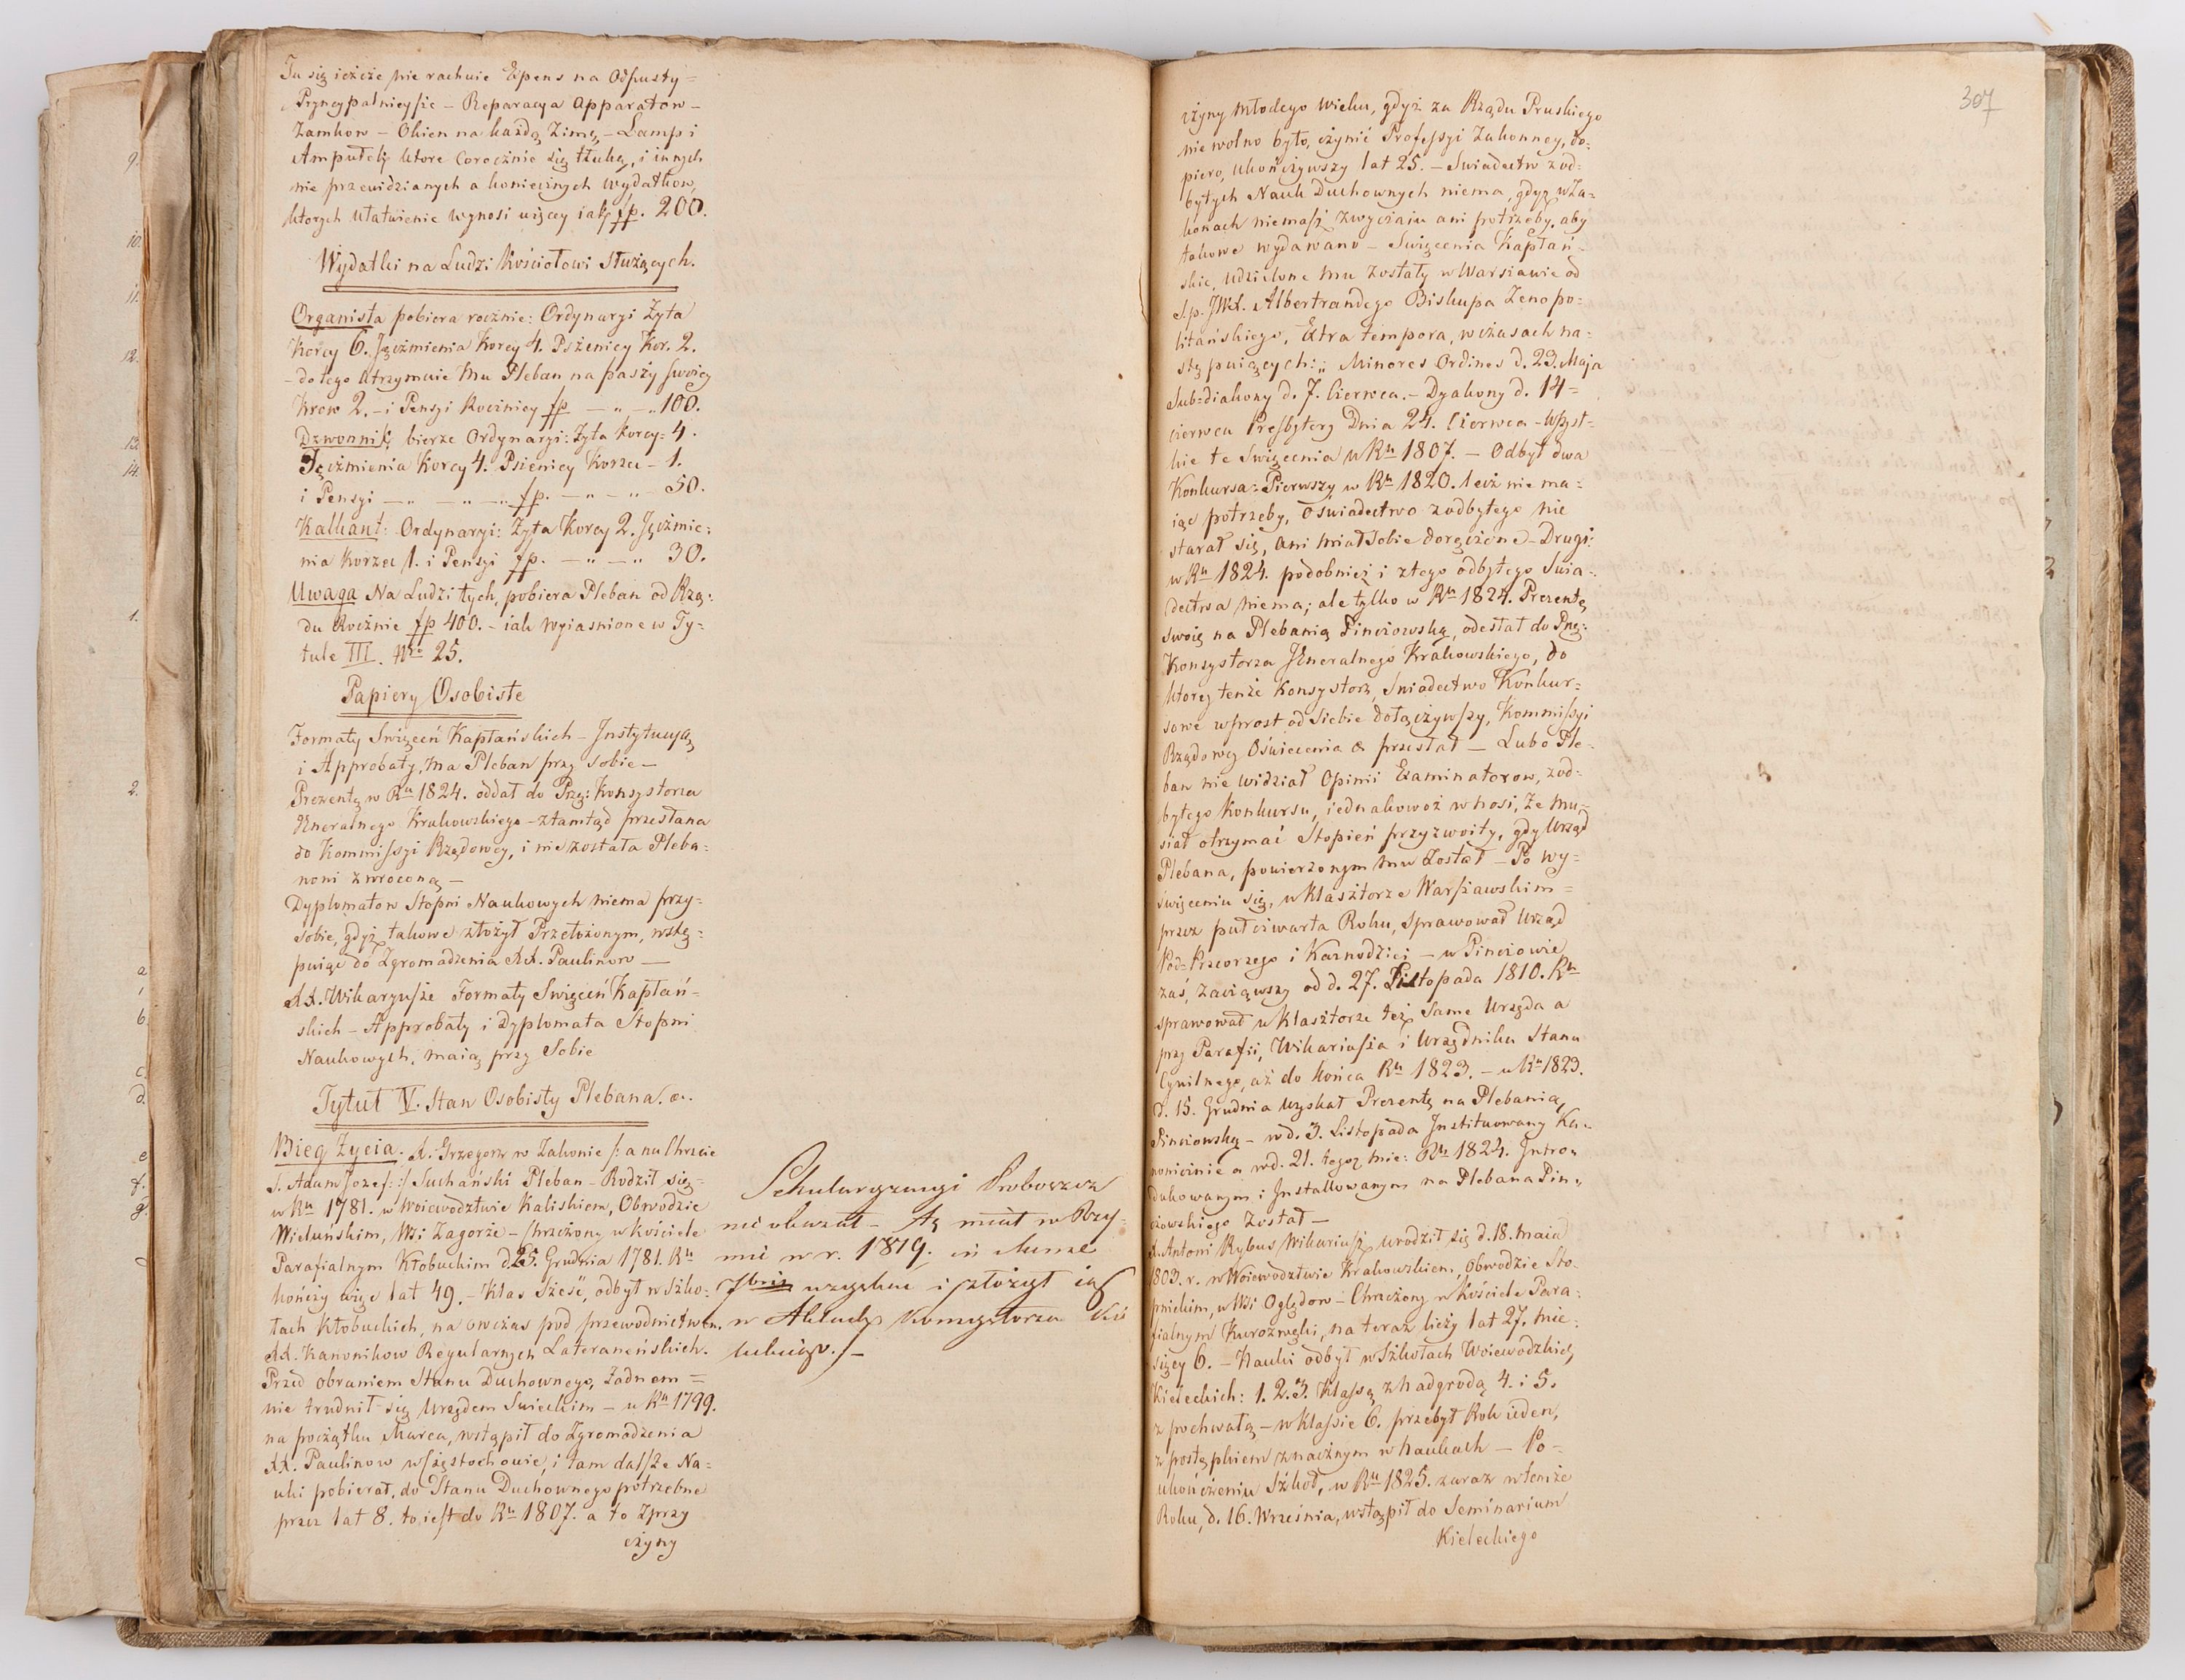 Tu się ieżcże nie rachuie Expens na Odpusty =
Pryncypalnieysze – Reparacya Apparatow –
Zamkow – Okien na każdą Zimę, – Lamp i
Ampułek, ktore corocznie się tłuką, i innych
nie przewidzianych a koniecznych wydatkow,
ktorych ułatwienie wynosi więcey iak fp. 200.
Wydatki na Ludzi Kościołowi służących.
Organista pobiera rocznie: Ordynaryi Zyta
Korcy 6. Jęczmienia Korcy 4. Pszenicy Kor. 2.
– do tego utrzymuie mu Pleban na paszy swoiey
Krow 2. – i Pensyi Roczniey fp – „ – „ 100.
Dzwonnik bierze Ordynaryi: Zyta korcy = 4.
Jęczmienia Korcy 4. Pszenicy Korzec – 1.
i Pensyi – „ – „ – „ fp. – „ – „ – 50.
Kalkant: Ordynaryi: Zyta Korcy 2. Jęczmie:
nia Korzec 1. i Pensyi fp. – „ – „ 30.
Uwaga Na Ludzi tych, pobiera Pleban od Rzą:
du Rocznie fp 400. – iak wyiasnione w Ty=
tule III. Nro 25.
Papiery Osobiste
Formaty Swięceń Kapłańskich – Jnstytucyą,
i Approbaty, ma Pleban przy sobie –
Prezentę w Ru 1824. oddał do Prz: Konsystorza
Jeneralnego Krakowskiego – ztamtąd przesłana
do Kommissyi Rządowey, i nie została Pleba=
nowi zwroconą –
Dyplomatow Stopni Naukowych niema przy=
sobie, gdyż takowe złożył Przełożonym, wstę=
puiąc do Zgromadzenia XX. Paulinow –
XX. Wikaryusze Formaty Swięceń Kapłań=
skich – Approbaty i Dyplomata Stopni
Naukowych, maią przy Sobie
Tytuł V. Stan Osobisty Plebana. &.
Bieg Zycia. X. Grzegorz w Zakonie /: a na Chrzcie
S. Adam Jozef :/ Suchański Pleban – Rodził się =
w Ru 1781. w Woiewodztwie Kaliskiem, Obwodzie
Wieluńskim, Wsi Zagorże – Chrzczony w Kościele
Parafialnym Kłobuckim d. 25. Grudnia 1781. Ru
kończy więc lat 49. – Klas Sześć, odbył w Szko=
łach Kłobuckich, na owczas pod przewodnictwem
XX. Kanonikow Regularnych Lateraneńskich.
Przed obraniem Stanu Duchownego, Żadnem =
nie trudnił się Urzędem Swieckim – w Ru 1799.
na początku Marca, wstąpił do Zgromadzenia
XX. Paulinow w Częstochowie, i tam dalsze Na=
uki pobierał, do Stanu Duchownego potrzebne
przez lat 8. to iest do Ru 1807. a to z przy
czyny
Sekularyzacyi Proboszcz
nie okazał – Aż miał w Rzy=
mie w r. 1819. in Mense
7bris uzyskać i złożyć ią
w Aktach Konsystorza Kie
leckiego. /–
307
czyny młodego wieku, gdyż za Rządu Pruskiego
nie wolno było, czynić Professyi Zakonney, do=
piero, ukończywszy lat 25. – Swiadectw z od=
bytych Nauk Duchownych niema, gdyż w Za=
konach niemasz zwyczaiu ani potrzeby, aby
takowe wydawano – Swięcenia Kapłań=
skie, udzielone mu zostały w Warszawie od
S.p. JWX. Albertrandego Biskupa Zenopo=
litańskiego, Extra tempora, w czasach na=
stępuiących: „ Minores Ordines d. 29. Maja
Sub=diakony d. 7. Czerwca. – Dyakony d. 14 =
czerwca Presbytery Dnia 24. Czerwca – Wszyst=
kie te Swięcenia w Ru 1807. – Odbył dwa
Konkursa: Pierwszy w Ru 1820. lecz nie ma=
iąc potrzeby, o swiadectwo z odbytego nie
starał się, ani miał Sobie doręczone – Drugi:
w Ru 1824. podobnież i z tego odbytego Swia=
dectwa niema; ale tylko w Ru 1824. Prezentę
swoię na Plebanią Pinczowską, odesłał do Prz:
Konsystorza Jeneralnego Krakowskiego, do
ktorey tenże Konsystorz, Swiadectwo Konkur=
sowe wprost od Siebie dołączywszy, Kommissyi
Rządowey Oświecenia &. przesłał – Lubo Ple=
ban nie widział Opinii Examinatorow, z od=
bytego Konkursu, iednakowoż wnosi, że mu=
siał otrzymać Stopień przyzwoity, gdy Urząd
Plebana, powierzonym mu Został – Po wy=
święceniu się, w Klasztorze Warszawskim =
przez puł czwarta Roku, sprawował Urząd
Pod=Przeorzego i Kaznodziei – w Pinczowie
zaś, zacząwszy od d. 27. Listopada 1810. Ru
sprawował w Klasztorze też same Urzęda a
przy Parafii, Wikariusza i Urzędnika Stanu
Cywilnego, aż do końca Ru 1823. – w Ru 1823.
d. 15. Grudnia uzyskał Prezentę na Plebanią
Pinczowską – w d. 3. Listopada Jnstituowany Ka=
nonicznie a w d. 21. tegoż mie: Ru 1824. Jntro=
dukowanym i Jnstallowanym na Plebana Pin=
czowskiego został –
X. Antoni Rybus Wikariusz urodził się d. 18. maia
1803. r. w Woiewodztwie Krakowskiem, Obwodzie Sto=
pnickim, w Wsi Oględow – Chrzczony w Kościele Para=
fialnym Kurozwęki, na teraz liczy lat 27. mie=
sięcy 6. – Nauki odbył w Szkołach Woiewodzkich
Kieleckich: 1. 2. 3. Klassę z nadgrodą 4. i 5.
z pochwałą – w Klassie 6. przebył Rok ieden,
z postępkiem znacznym w naukach – Po=
ukończeniu Szkoł, w Ru 1825. zaraz w tenże
Roku, d. 16. Września, wstąpił do Seminarium
Kieleckiego